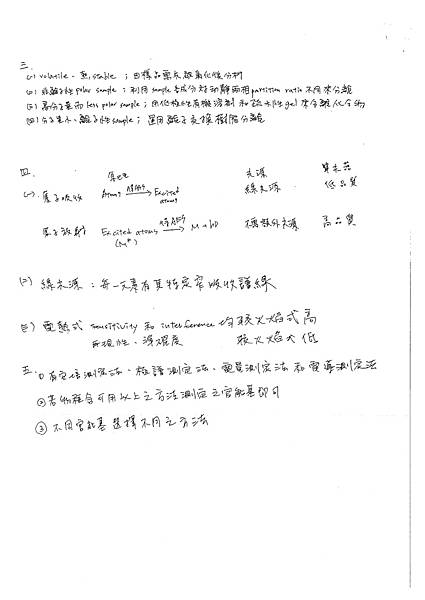 三.
(一) volatile、熱 stable ; 因樣品需先被氣化後分析
(二) 非離子性 polar sample ; 利用 sample 各成分對動靜兩相 partition ratio 不同來分離
(三) 高分子量而 less polar sample ; 用化性性有機溶劑和疏水性 gel 來分離化合物
(四) 分子量小、離子性 sample ; 運用離子交換樹脂分離
四.
光源 單光器
(一). 原子吸收 Atoms → Excited atoms 線光源 低品質
原子放射 Excited atoms (M*) → M + hν 不需額外光源 高品質
(二) 線光源 : 每一元素有其特定窄吸收譜線
(三) 電熱式 sensitivity 和 interference 均較火焰式高
再現性、準確度 較火焰式低
五. ① 有電位測定法、極譜測定法、電量測定法和電導測定法
② 若物種含可用以上之方法測定之官能基即可
③ 不同官能基選擇不同之方法